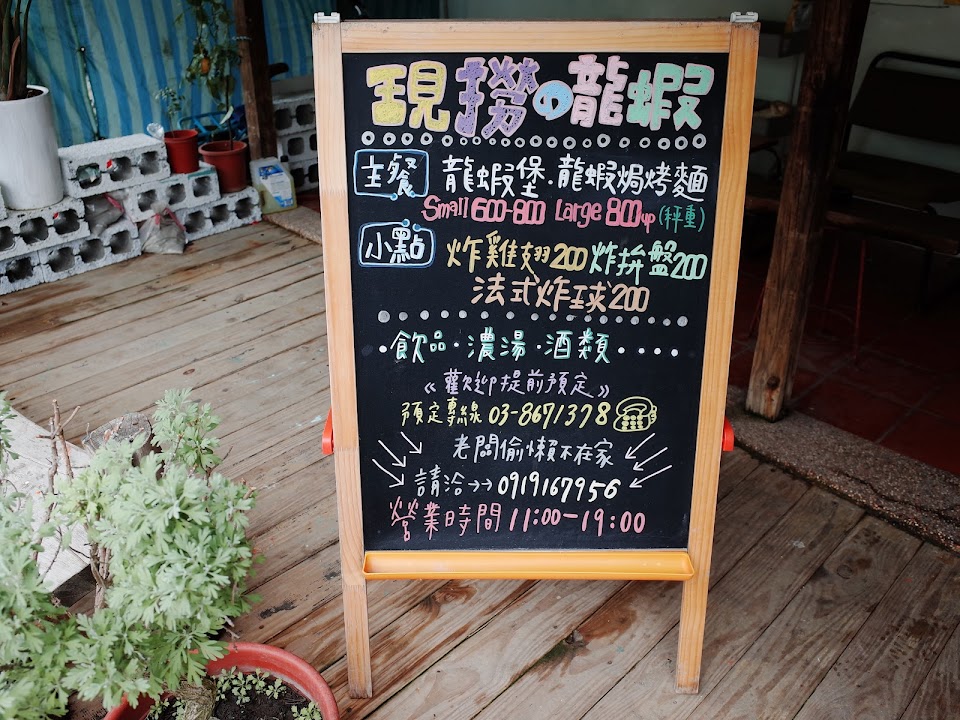 現撈の龍蝦
主餐 龍蝦堡·龍蝦焗烤麵
Small 600-800 Large 800up (秤重)
小點 炸雞翅200 炸拚盤200
法式炸球200
·飲品·濃湯·酒類····
《歡迎提前預定》
預定專線 03-8671378
老闆偷懶不在家
請洽→→0919167956
營業時間 11:00-19:00